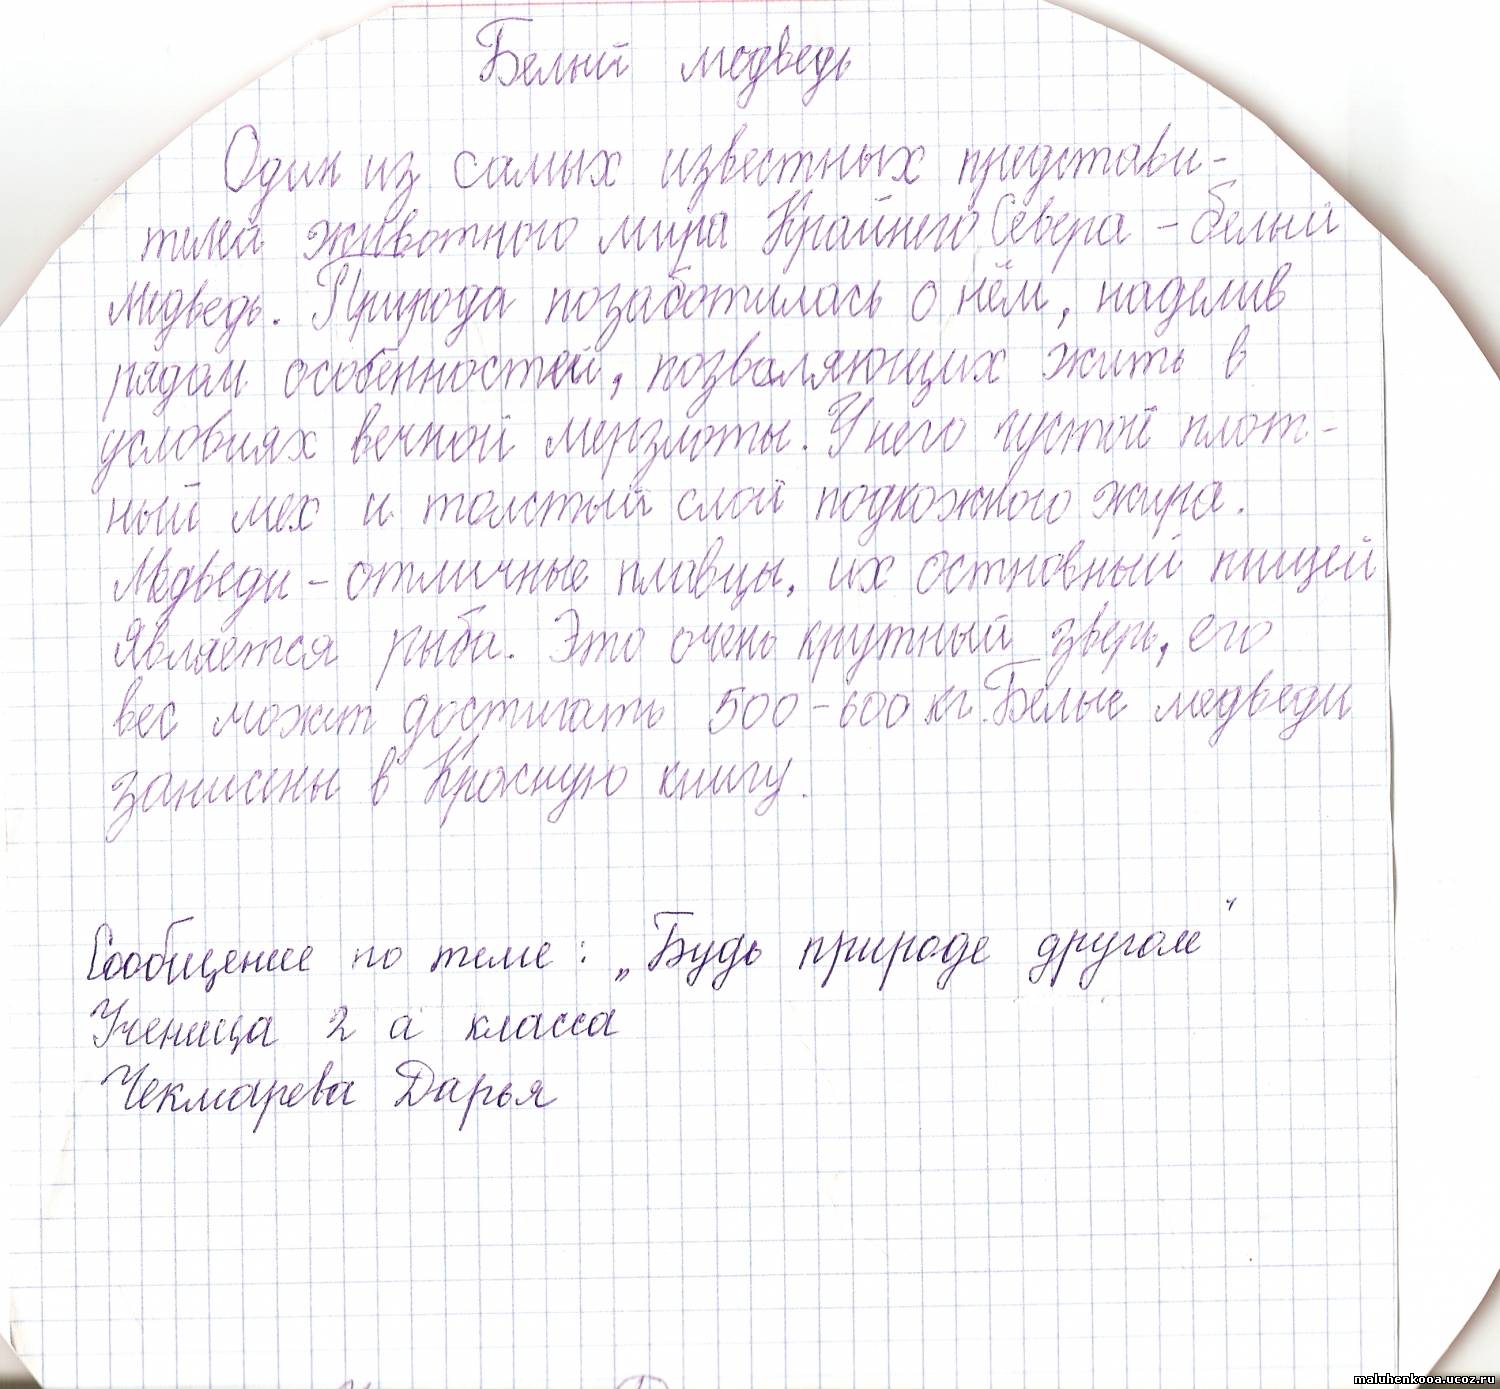 Белый медведь
Один из самых известных представи-
телей животного мира Крайнего Севера - белый
медведь. Природа позаботилась о нём, наделив
рядом особенностей, позваляющих жить в
условиях вечной мерзлоты. У него густой плот-
ный мех и толстый слой подкожного жира.
Медведи - отличные плавцы, их остновный пищей
является рыба. Это очень крупный зверь, его
вес может достигать 500-600 кг. Белые медведи
занисены в Красную книгу.
Сообщение по теме: „Будь природе другом"
Ученица 2 а класса
Чекмарева Дарья
maluhenkooa.ucoz.ru